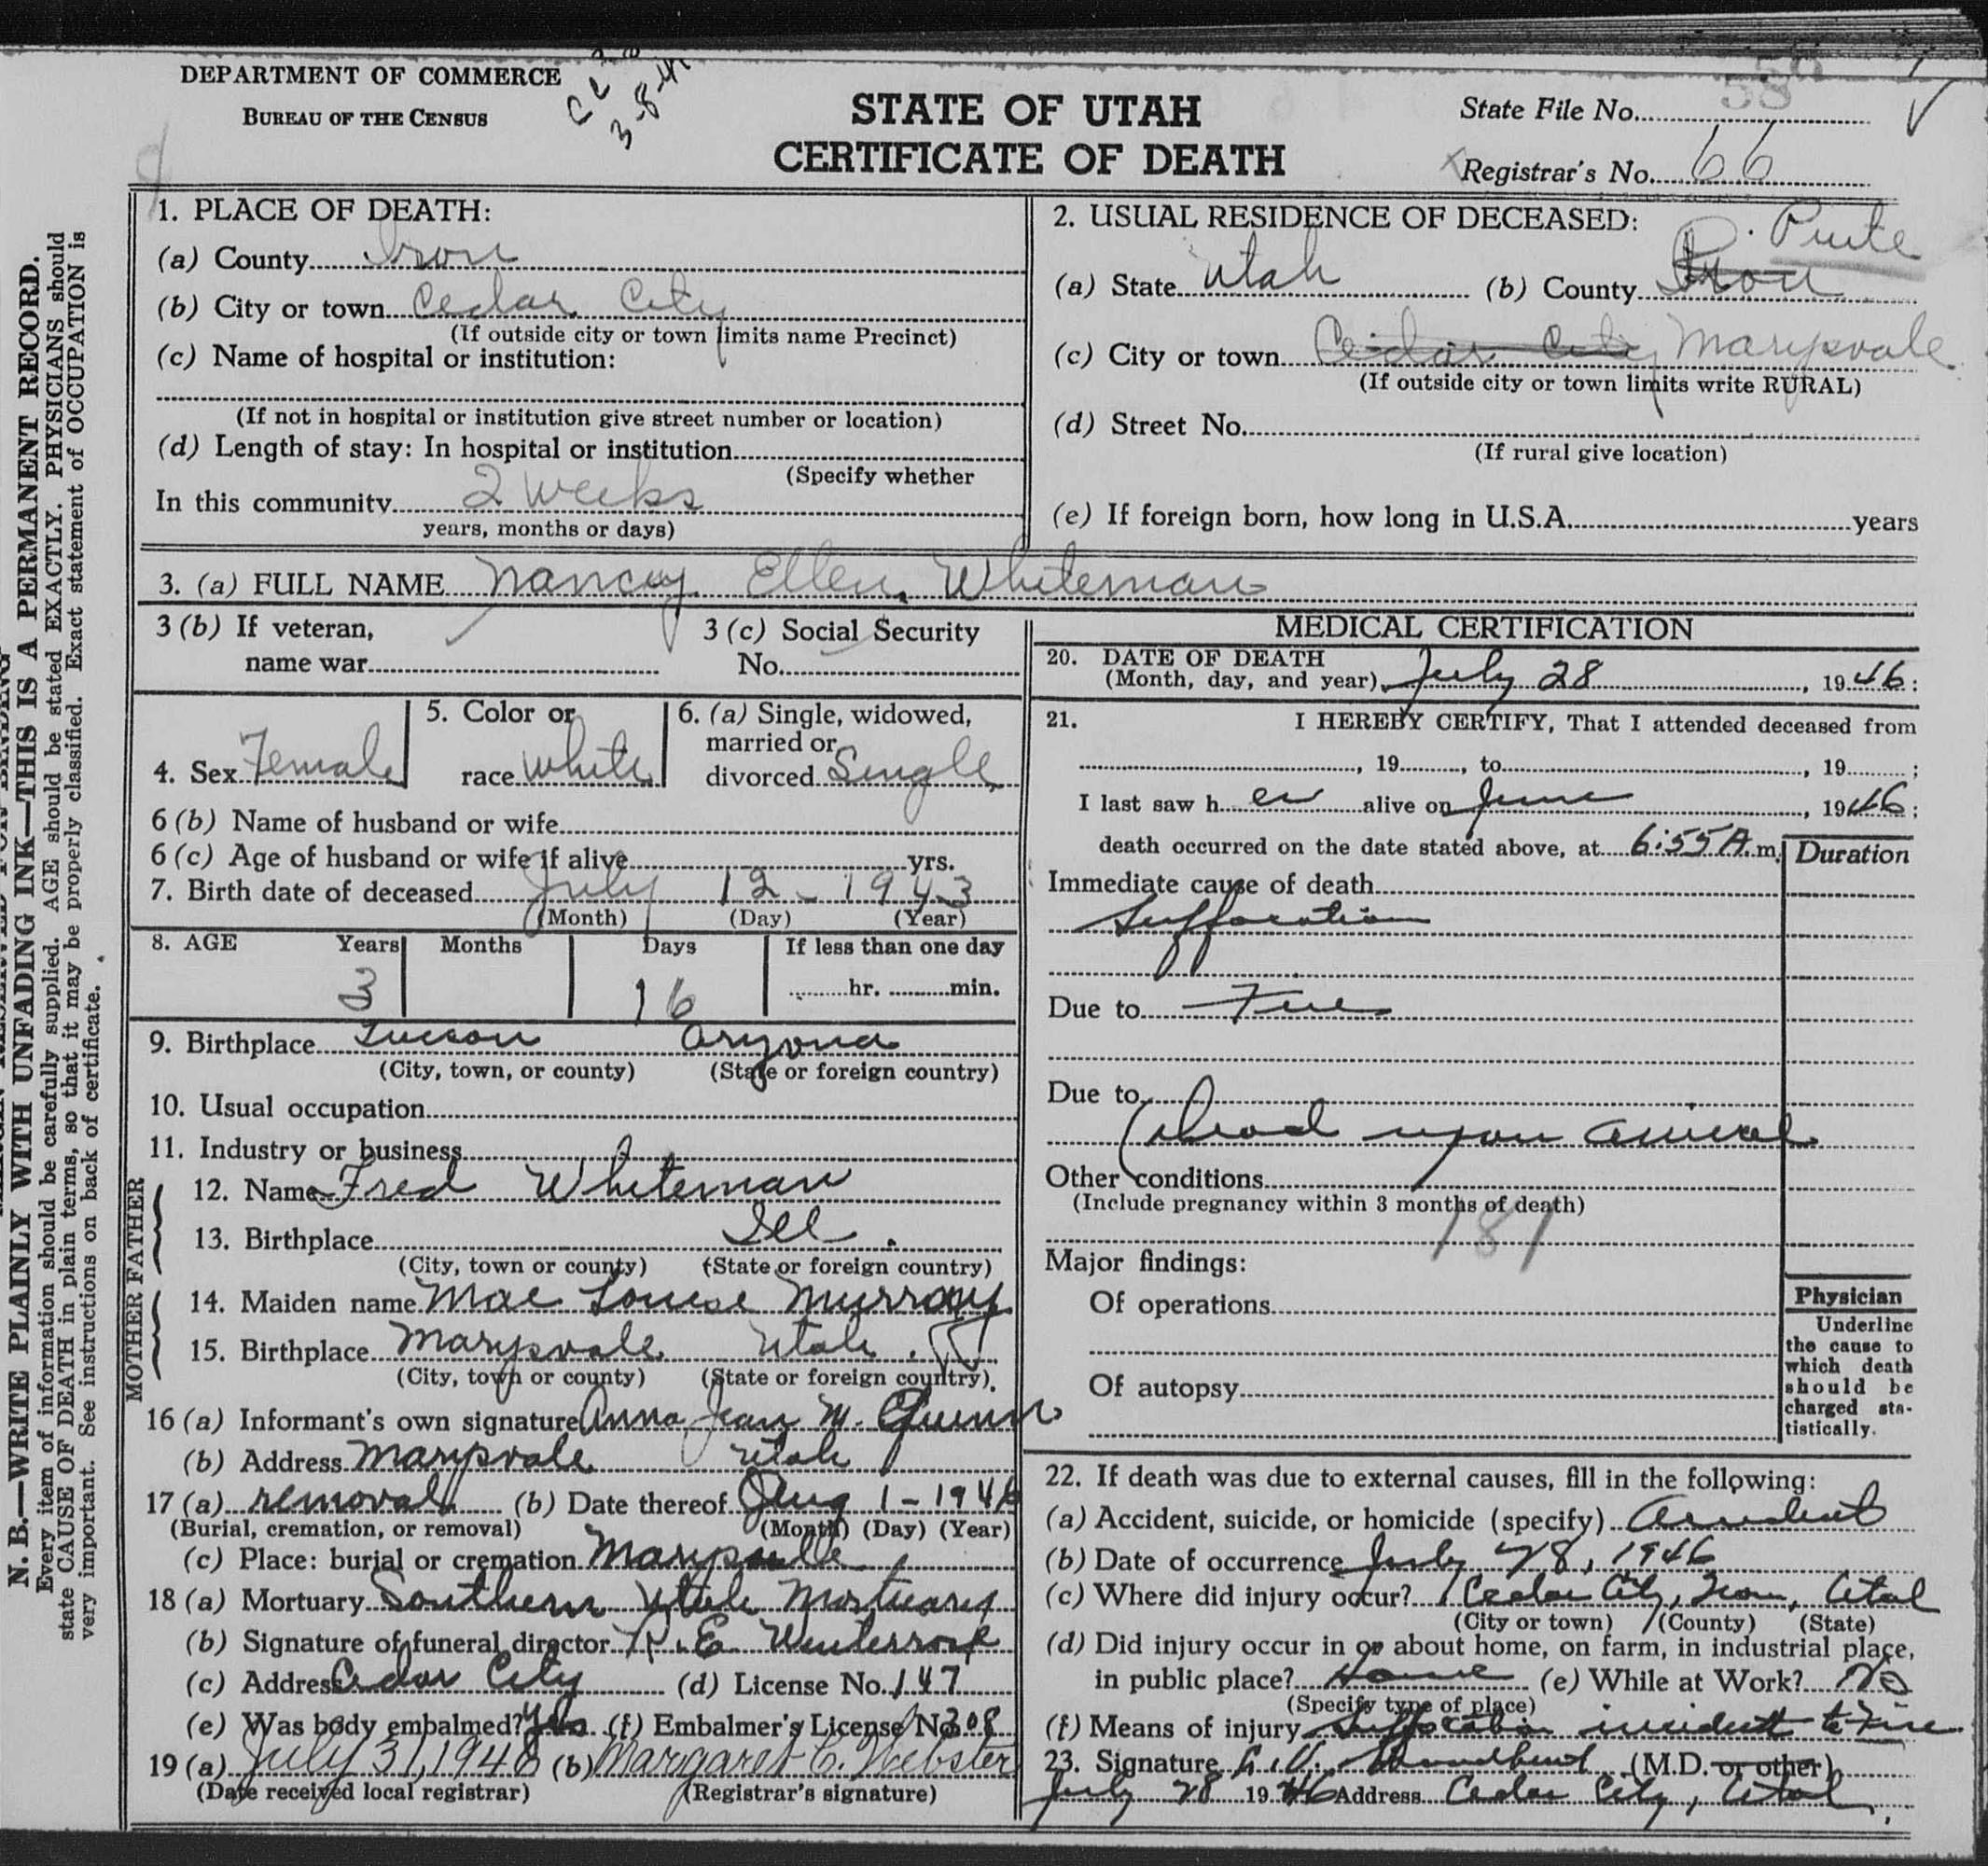 DEPARTMENT OF COMMERCE
BUREAU OF THE CENSUS
3-8-41
STATE OF UTAH
CERTIFICATE OF DEATH
State File No. 58
Registrar's No. 66
N. B.—WRITE PLAINLY WITH UNFADING INK—THIS IS A PERMANENT RECORD.
Every item of information should be carefully supplied. AGE should be stated EXACTLY. PHYSICIANS should
state CAUSE OF DEATH in plain terms, so that it may be properly classified. Exact statement of OCCUPATION is
very important. See instructions on back of certificate.
1. PLACE OF DEATH:
(a) County Iron
(b) City or town Cedar City
(If outside city or town limits name Precinct)
(c) Name of hospital or institution:
(If not in hospital or institution give street number or location)
(d) Length of stay: In hospital or institution
(Specify whether
In this community 2 weeks
years, months or days)
2. USUAL RESIDENCE OF DECEASED:
(a) State Utah (b) County Iron Piute
(c) City or town Cedar City Marysvale
(If outside city or town limits write RURAL)
(d) Street No.
(If rural give location)
(e) If foreign born, how long in U.S.A. years
3. (a) FULL NAME Nancy Ellen Whiteman
3 (b) If veteran,
name war
3 (c) Social Security
No.
4. Sex Female
5. Color or
race White
6. (a) Single, widowed,
married or
divorced Single
6 (b) Name of husband or wife
6 (c) Age of husband or wife if alive yrs.
7. Birth date of deceased July 12 - 1943
(Month) (Day) (Year)
8. AGE Years Months Days If less than one day
3 16 hr. min.
9. Birthplace Tucson Aryona
(City, town, or county) (State or foreign country)
10. Usual occupation
11. Industry or business
FATHER
12. Name Fred Whiteman
13. Birthplace Ill.
(City, town or county) (State or foreign country)
MOTHER
14. Maiden name Mae Louise Murray
15. Birthplace Marysvale Utah.
(City, town or county) (State or foreign country).
16 (a) Informant's own signature Anna Jean M. Quinn
(b) Address Marysvale Utah
17 (a) removal (b) Date thereof Aug 1-1946
(Burial, cremation, or removal) (Month) (Day) (Year)
(c) Place: burial or cremation Marysvale
18 (a) Mortuary Southern Utah Mortuary
(b) Signature of funeral director R. E Winterrose
(c) Address Cedar City (d) License No. 147
(e) Was body embalmed? Yes (f) Embalmer's License No. 308
19 (a) July 31, 1946 (b) Margaret C. Webster
(Date received local registrar) (Registrar's signature)
MEDICAL CERTIFICATION
20. DATE OF DEATH
(Month, day, and year) July 28, 1946:
21. I HEREBY CERTIFY, That I attended deceased from
, 19 , to , 19 ;
I last saw her alive on June, 1946;
death occurred on the date stated above, at 6:55 A.m. Duration
Immediate cause of death
Suffocation
Due to Fire
Due to
(Dead upon arrival
Other conditions
(Include pregnancy within 3 months of death)
181
Major findings:
Of operations
Of autopsy
Physician
Underline
the cause to
which death
should be
charged sta-
tistically.
22. If death was due to external causes, fill in the following:
(a) Accident, suicide, or homicide (specify) Accident
(b) Date of occurrence July 28, 1946
(c) Where did injury occur? Cedar City, Iron, Utah
(City or town) (County) (State)
(d) Did injury occur in or about home, on farm, in industrial place,
in public place? Home (e) While at Work? No
(Specify type of place)
(f) Means of injury Suffocation incident to Fire
23. Signature (M.D. or other)
July 28 1946 Address Cedar City, Utah